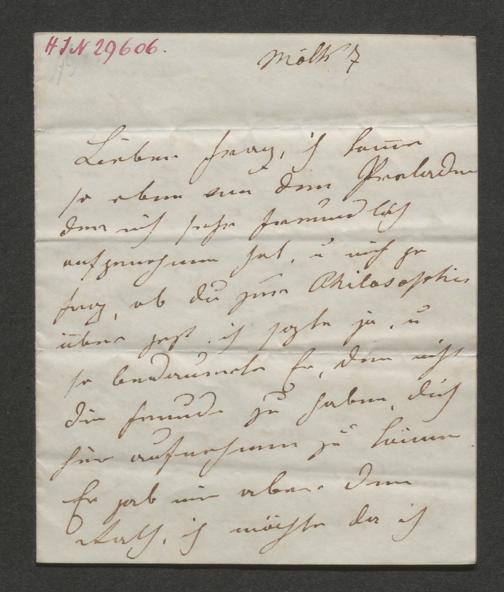 H.I.N. 29606.
Mölk 7
Lieber Franz, ich komme
so eben von dem Prelaten
der mich sehr freundlich
aufgenohmen hat, u mich ge
frag, ob du zur Philosophie
über gest. ich sagte ja, u
so bedauerte Er, dan nicht
die Freude zu haben, dich
hier aufnehmen zu können.
Er gab mir aber den
Rath, ich möchte da ich